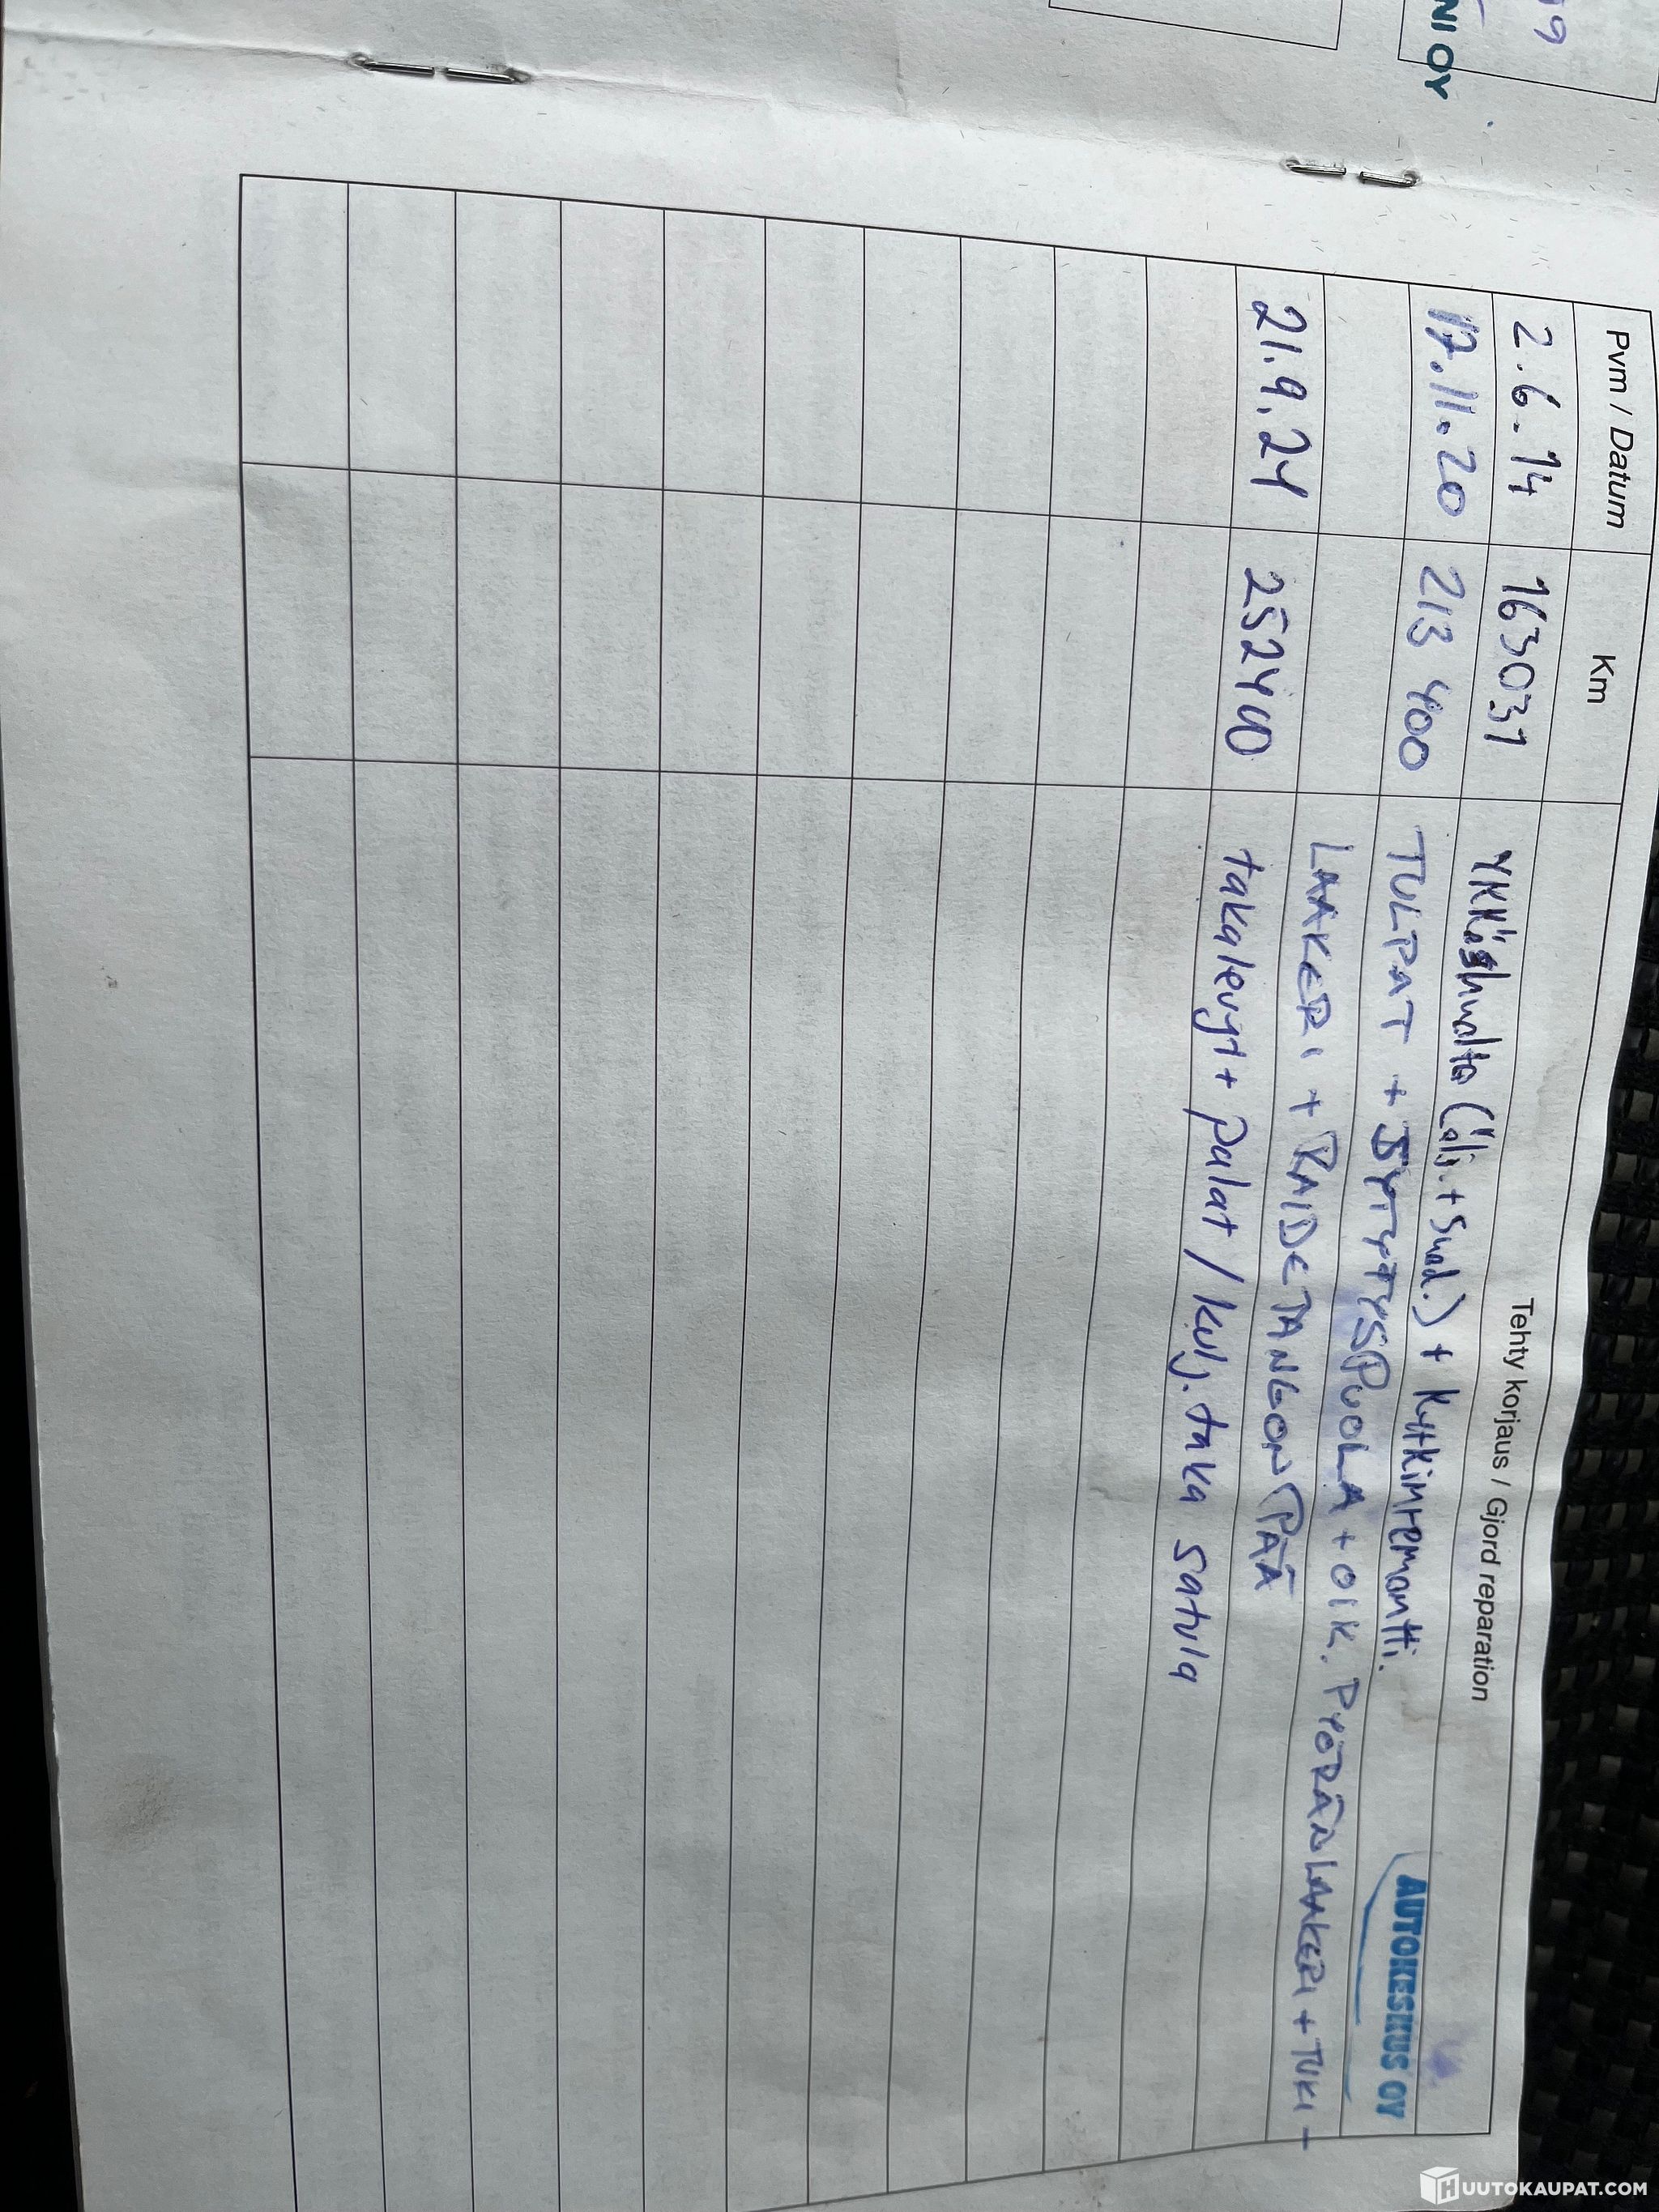 9
NI OY
Pvm / Datum Km Tehty korjaus / Gjord reparation
2.6.14 163031 YKK.öshuolto (ölj.+suod.) + Kytkinremontti.
AUTOKESKUS OY
17.11.20 213 400 TULPAT + SYTYTYSPUOLA + OIK. PYÖRÄNLAAKERI + TUKI-
LAAKERI + RAIDETANGON PÄÄ
21.9.24 252400 takalevyt + palat / kulj. taka satula
HUUTOKAUPAT.COM